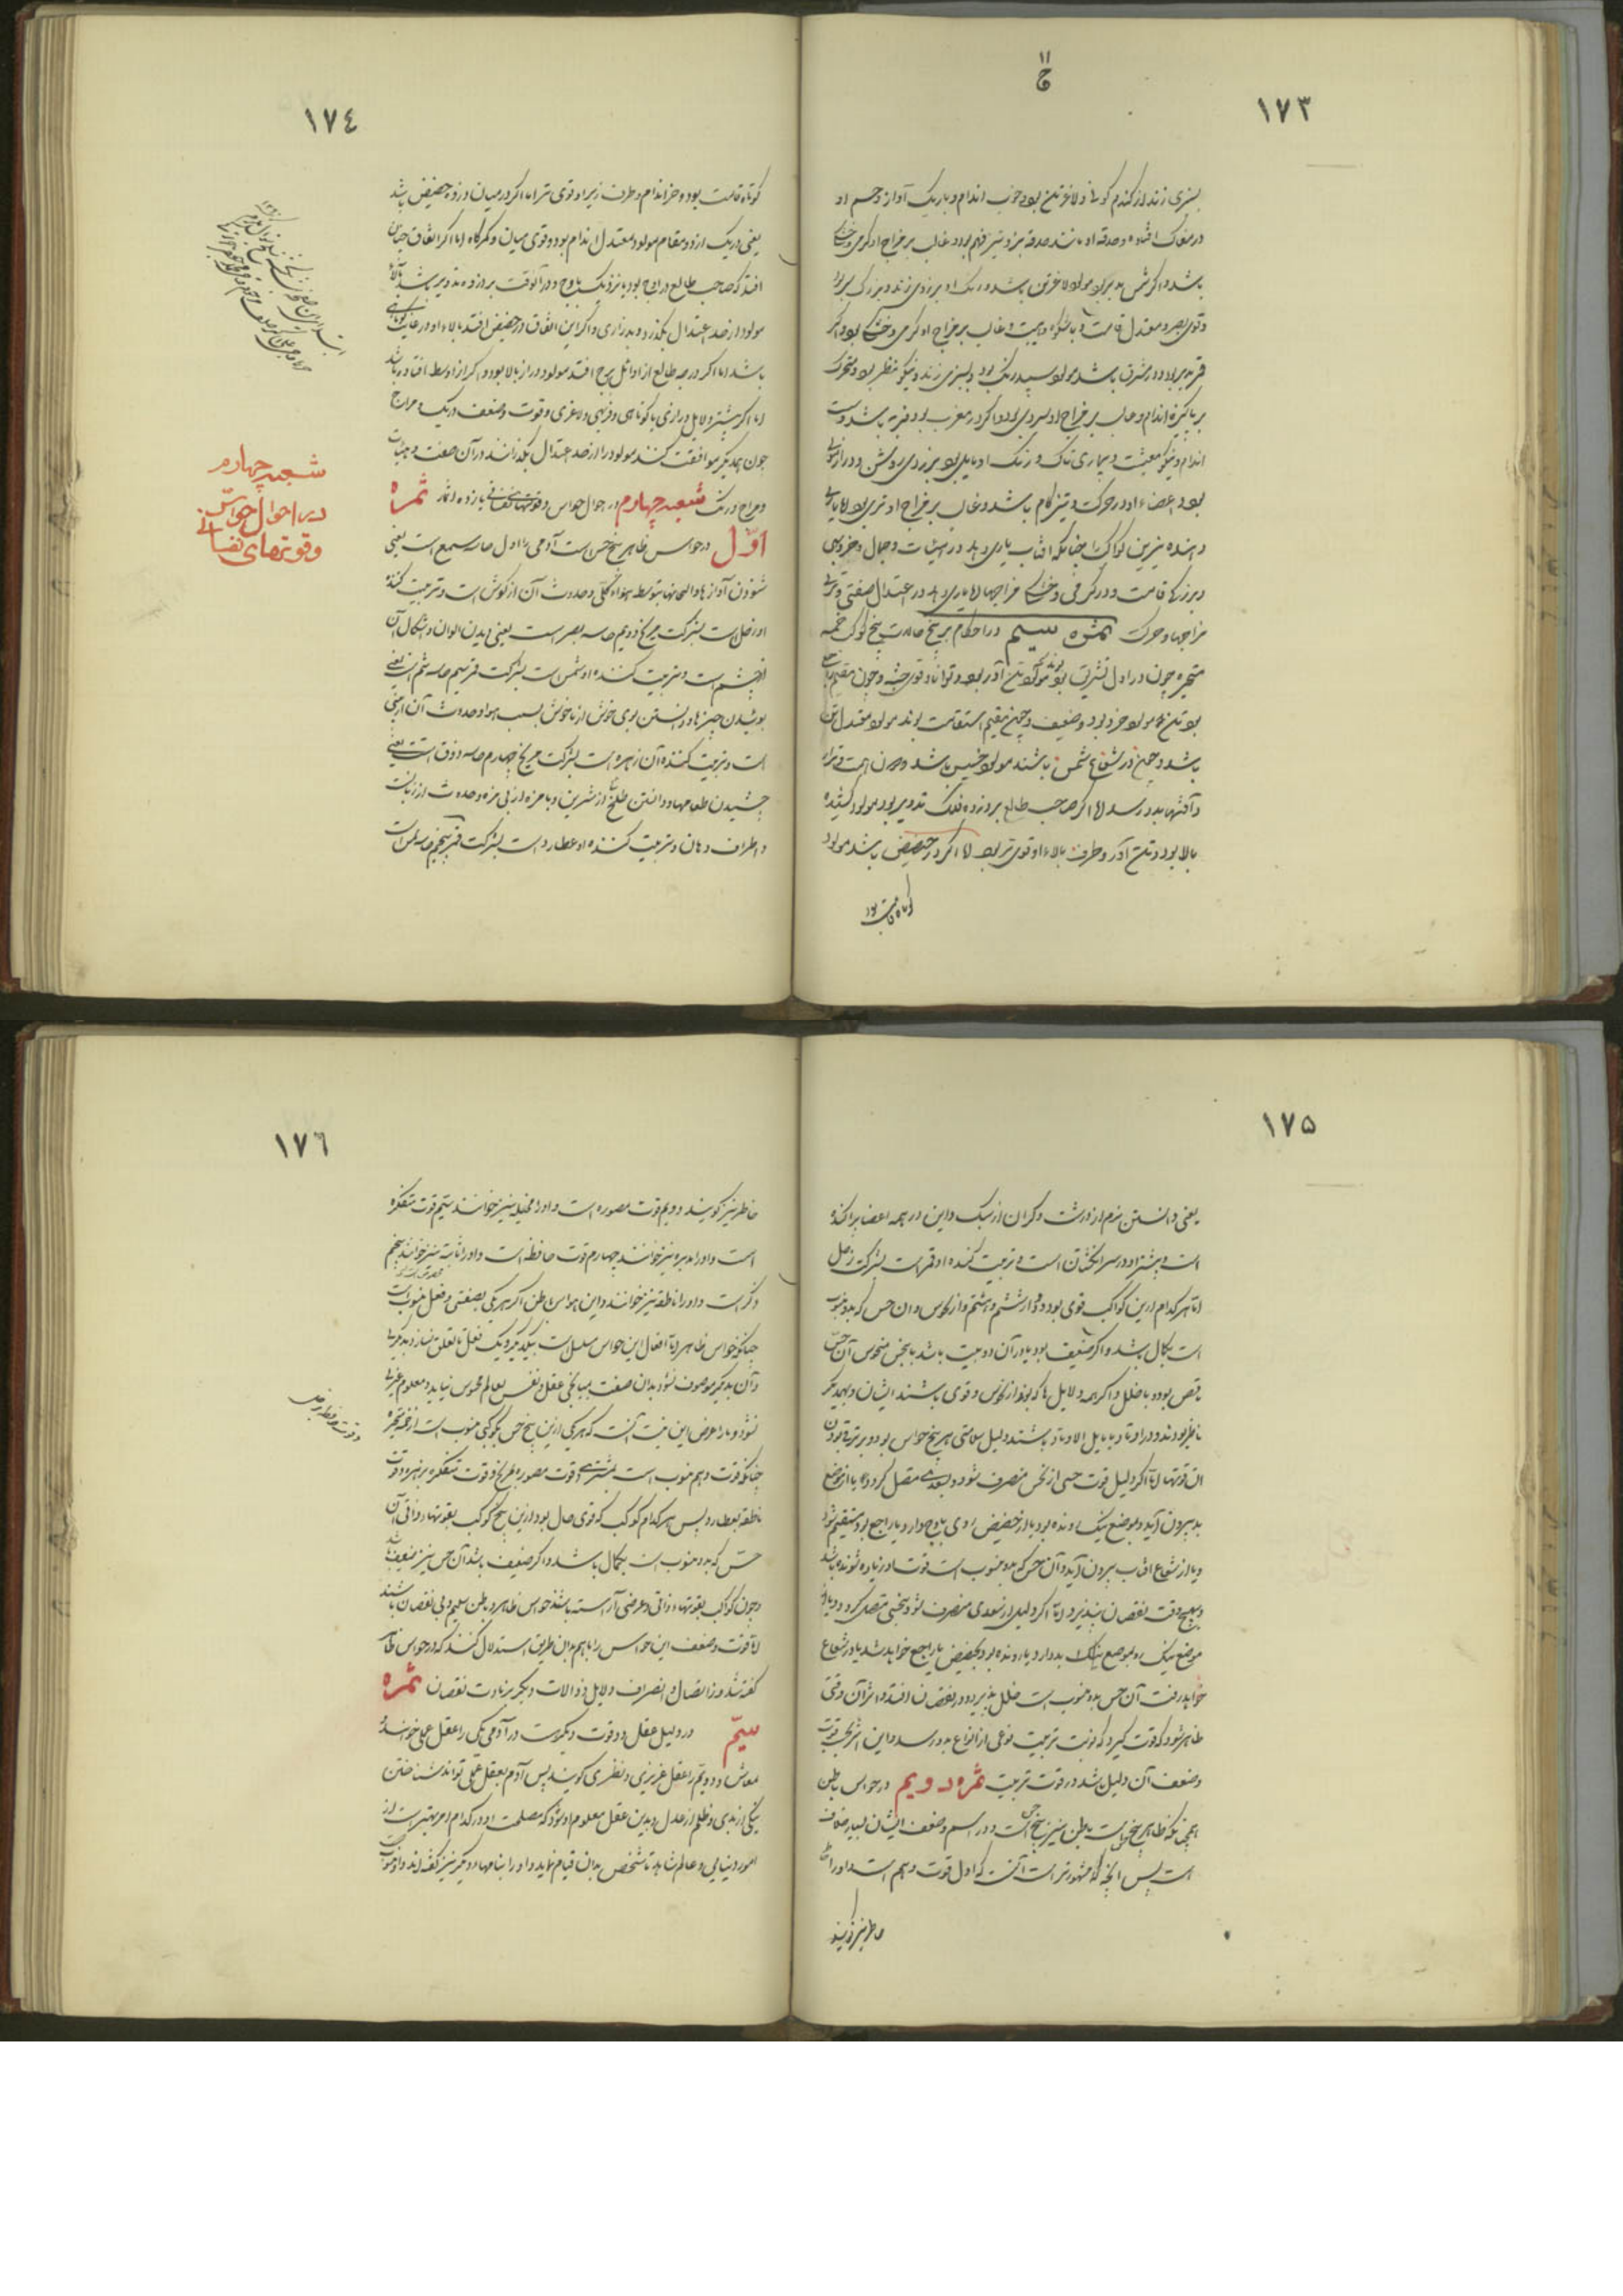 ۱۷۳
بسبزی زند از کندم کونی و لاغر تن بود و خوب اندام و باریک آواز و چشم او
در مغاک افتاده و حدقه او مانند حدقه بز و تیز فهم بود و غالب بر مزاج او کرمی و خشکی
باشد و اکر شمس مدبر بود مولود لاغر تن باشد و رنک او بزردی زند و بزرک سر بود
و قوی بصر و معتدل قامت و باشکوه و هیبت و غالب بر مزاج او کرمی و خشکی بود و اکر
قمر مدبر بود و در مشرق باشد مولود سپید رنک بود و بسبزی زند و نیکو منظر بود و متحرک
و پاکیزه اندام و غالب بر مزاج او سردی بود و اکر در مغرب بود فربه باشد و سست
اندام و نیکو معیشت و بیماری ناک و رنک او مایل بود بزردی روشن و دراز
بود اعضاء او در حرکت و تیز کام باشد و غالب بر مزاج او تری بود اما یاری
دهنده نیرین کواکب را چنانکه افتاب یاری دهد در هیئات و جمال و فربهی
و بزرکی قامت و در کرمی و خشکی مزاجها اما یاری دهد در اعتدال صفتی و تری
مزاجها و حرکت ثمره سیم در احکام بر پنج حالت پنج کوکب خمسه
متحیره چون در اول تشریق بوند مولود تن آور بود و توانا و قوی جثه و چون مقیم
بود تن مولود خرد بود و ضعیف و چون مقیم استقامت بوند مولود معتدل تن
باشد و چون در شعاع شمس باشند مولود خسیس باشد و دون همت
و آفتها بدو رسد اما اکر صاحب طالع بر ذروه فلک تدویر بود مولود کشیده
بالا بود و تن آور و طرف بالاء او قوی تر بود اما اکر در حضیض باشد مولود
کوتاه قامت بود
۱۷٤
کوتاه قامت بود و خرد اندام و طرف زیر او قوی تر اما اکر در میان ذروه و حضیض باشد
یعنی در یک از دو مقام مولود معتدل اندام بود و قوی میان و کمرکاه اما اکر اتفاق چنان
افتد که صاحب طالع در اوج بود یا نزدیک باوج و در آنوقت بر ذروه تدویر باشد بالاء
مولود از حد اعتدال بکذرد و بدرازی و اکر این اتفاق در حضیض افتد بالاء او در غایت کوتاهی
باشد اما اکر درجه طالع از اوائل برج افتد مولود دراز بالا بود و اکر از اوسط افتاده باشد
اما اکر بیشتر دلایل درازی یا کوتاهی و فربهی و لاغری و قوت و ضعف و رنک و مزاج
چون همدیکر موافقت کنند مولود را از حد اعتدال بکذرانند در آن صفت و هیئات
و مزاج و رنک شعبه چهارم در احوال حواس و قوتهای نفسانی یازده ثمار ثمره
اوّل در حواس ظاهر پنج حس است آدمی را اول حاسه سمع است یعنی
شنودن آوازها و الحانها بتوسط هواء محلی و حدوث آن از کوش است و تربیت کننده
او زحل است بشرکت مریخ دویم حاسه بصر است یعنی دیدن الوان و اشکال آن
از چشم است و تربیت کننده او شمس است بشرکت قمر سیم حاسه شم است یعنی
بوئیدن چیزها و دانستن بوی خوش از ناخوش بسبب هوا و حدوث آن از بینی
است و تربیت کننده آن زهره است بشرکت مریخ چهارم حاسه ذوق است یعنی
چشیدن طعامها و دانستن تلخ از شیرین و با مزه از بی مزه و حدوث از زبان
و اطراف دهان و تربیت کننده او عطارد است بشرکت قمر پنجم حاسه لمس است
شعبه چهارم
در احوال حواس
و قوتهای نفسانی
۱۷۵
یعنی دانستن نرم از درشت و کران از سبک و این در همه اعضا پراکنده
است و بیشتر او در سر انکشتان است و تربیت کننده او قمر است بشرکت زحل
اما هر کدام ازین کواکب قوی بود و دور از ششم و هشتم و از نحوس و ان حس که بدو منسوب
است بکمال باشد و اکر ضعیف بود یا در آن دو بیت باشد یا بنحس منحوس آن حس
ناقص بود و با خلل و اکر همه دلایل پاک بوند از نحوس و قوی باشند ایشان و بهمدیکر
ناظر بوند و در اوتاد یا مایل الاوتاد باشند دلیل سلامتی هر پنج حواس بود و برتری بودن
آن قوتها اما اکر دلیل قوت حسی از نحس منصرف شود و بسعدی متصل کردد یا از موضع
بد بیرون آید و بموضع نیک رونده بود یا از حضیض روی باوج دارد یا راجع بود و مستقیم شود
و یا از شعاع افتاب بیرون آید و آن حس که بدو منسوب است قوت او زیاده شونده باشد
و بهیچ وقت نقصان نپذیرد اما اکر دلیل از سعدی منصرف شود و بنحسی متصل کردد و یا از
موضع نیک رو بموضع بد دارد یا رونده بود بحضیض یا راجع خواهد شد یا در شعاع
خواهد رفت آن حس بدو منسوب است خلل پذیرد و در نقصان افتد و اثر آن وقتی
ظاهر شود که قوت کیرد که نوبت تربیت نوعی از انواع بدو رسد و این اثر بحسب قوت
و ضعف آن دلیل باشد در قوت تربیت ثمره دویم در حواس باطن
همچنانکه ظاهر پنج است باطن نیز پنج است و در اسم و ضعف ایشان بسیار خلاف
است پس آنچه که مشهورتر است آنست که اول قوت وهم است و او را
خاطر نیز کویند
۱۷٦
خاطر نیز کویند دویم قوت مصوره است و او را مخیله نیز خوانند سیم قوت متفکره
است و او را مدبره نیز خوانند چهارم قوت حافظه است و او را ثابته نیز خوانند پنجم
ذکر است و او را ناطقه نیز خوانند و این حواس باطن اکر هر یکی بصفتی و فعلی منسوب است
چنانکه حواس ظاهر اما افعال این حواس مسلسل است بیکدیکر و یک فعل تا تعلق نسازد بدیکری
و آن بدیکر موصوف نشود بدان صفت بمیانجی عقل و نفس بعالم محسوس نیاید و معلوم
نشود و ما را غرض این نیت آنست که هر یکی ازین پنج حس بکوکبی منسوب است از خمسه متحیره
چنانکه قوت وهم منسوب است بمشتری و قوت مصوره بمریخ و قوت متفکره بزهره و قوت
ناطقه بعطارد پس هر کدام کوکب که قوی حال بود ازین پنج کوکب بقوتهاء ذاتی آن
حسّ که بدو منسوب است بکمال باشد و اکر ضعیف باشد آن حس نیز ضعیف باشد
و چون کواکب بقوتهاء ذاتی و عرضی آراسته باشند حواس ظاهر و باطن سلیم و بی نقصان باشند
اما قوت و ضعف این حواس را باهم بدان طریق استدلال کنند که در حواس ظاهر
کفته شد و از اتصال و انصراف دلایل و زوالات دیکر بزیادت نقصان ثمره
سیّم در دلیل عقل و دو قوت دیکر است در آدمی یکی را عقل عملی خوانند و
معاش و دویم را عقل غریزی و نظری کویند پس آدم بعقل عملی تواند شناختن
نیکی از بدی و ظلم از عدل و بدین عقل معلوم او شود که مصلحت او در کدام امر بهتر است از
امور دنیایی و عالم شاهد تا شخص بدان قیام نماید و او را بنامهاء دیکر نیز کفته اند و او منسوب
و قوت حافظه بزحل